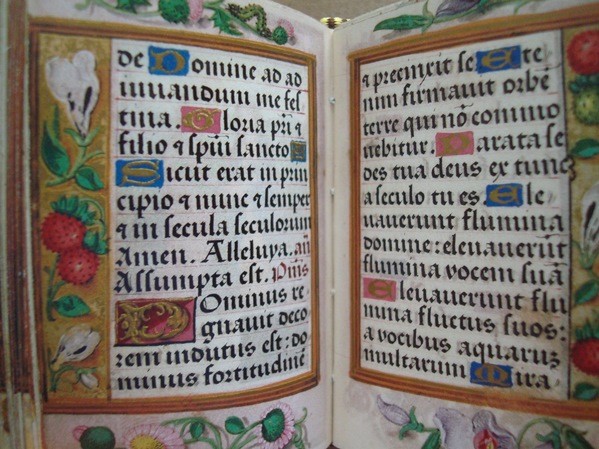 de Domine ad ad
iuuandum me fes
tina. Gloria pr̄i ⁊
filio ⁊ sp̄ui sancto
Sicut erat in prin
cipio ⁊ nunc ⁊ semper
⁊ in secula seculorum
Amen. Alleluya. an̄
Assumpta est. ps̄mꝰ
Dominus re
gnauit deco
rem indutus est: do
minus fortitudinē
⁊ precinxit se Ete
nim firmauit orbē
terre qui nō commo
uebitur. Parata se
des tua deus ex tunc
a seculo tu es. Ele
uauerunt flumina
domine: eleuauerūt
flumina vocem suā
Eleuauerunt flu
mina fluctus suos:
a vocibus aquarum
multarum Mira